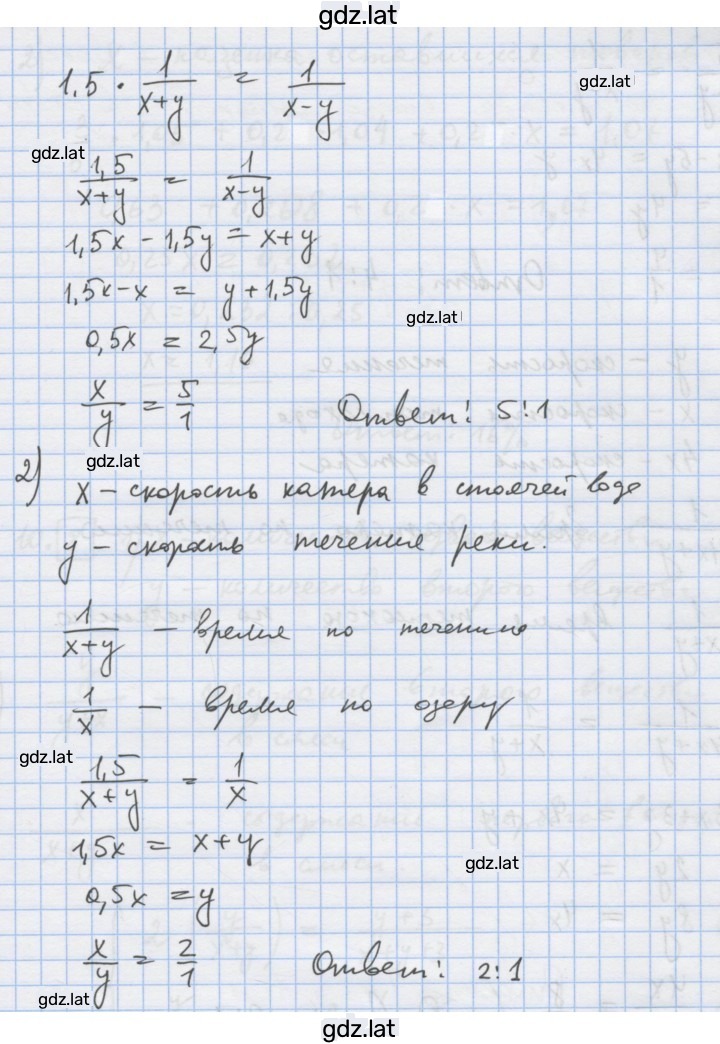 gdz.lat
1,5 · 1/(x+y) = 1/(x-y)
gdz.lat
gdz.lat
1,5/(x+y) = 1/(x-y)
1,5x - 1,5y = x+y
1,5x-x = y+1,5y
gdz.lat
0,5x = 2,5y
x/y = 5/1 Ответ: 5:1
gdz.lat
2) x - скорость катера в стоячей воде
y - скорость течение реки.
1/(x+y) - время по течению
1/x - время по озеру
gdz.lat
1,5/(x+y) = 1/x
1,5x = x+y
gdz.lat
0,5x = y
x/y = 2/1 Ответ: 2:1
gdz.lat
gdz.lat